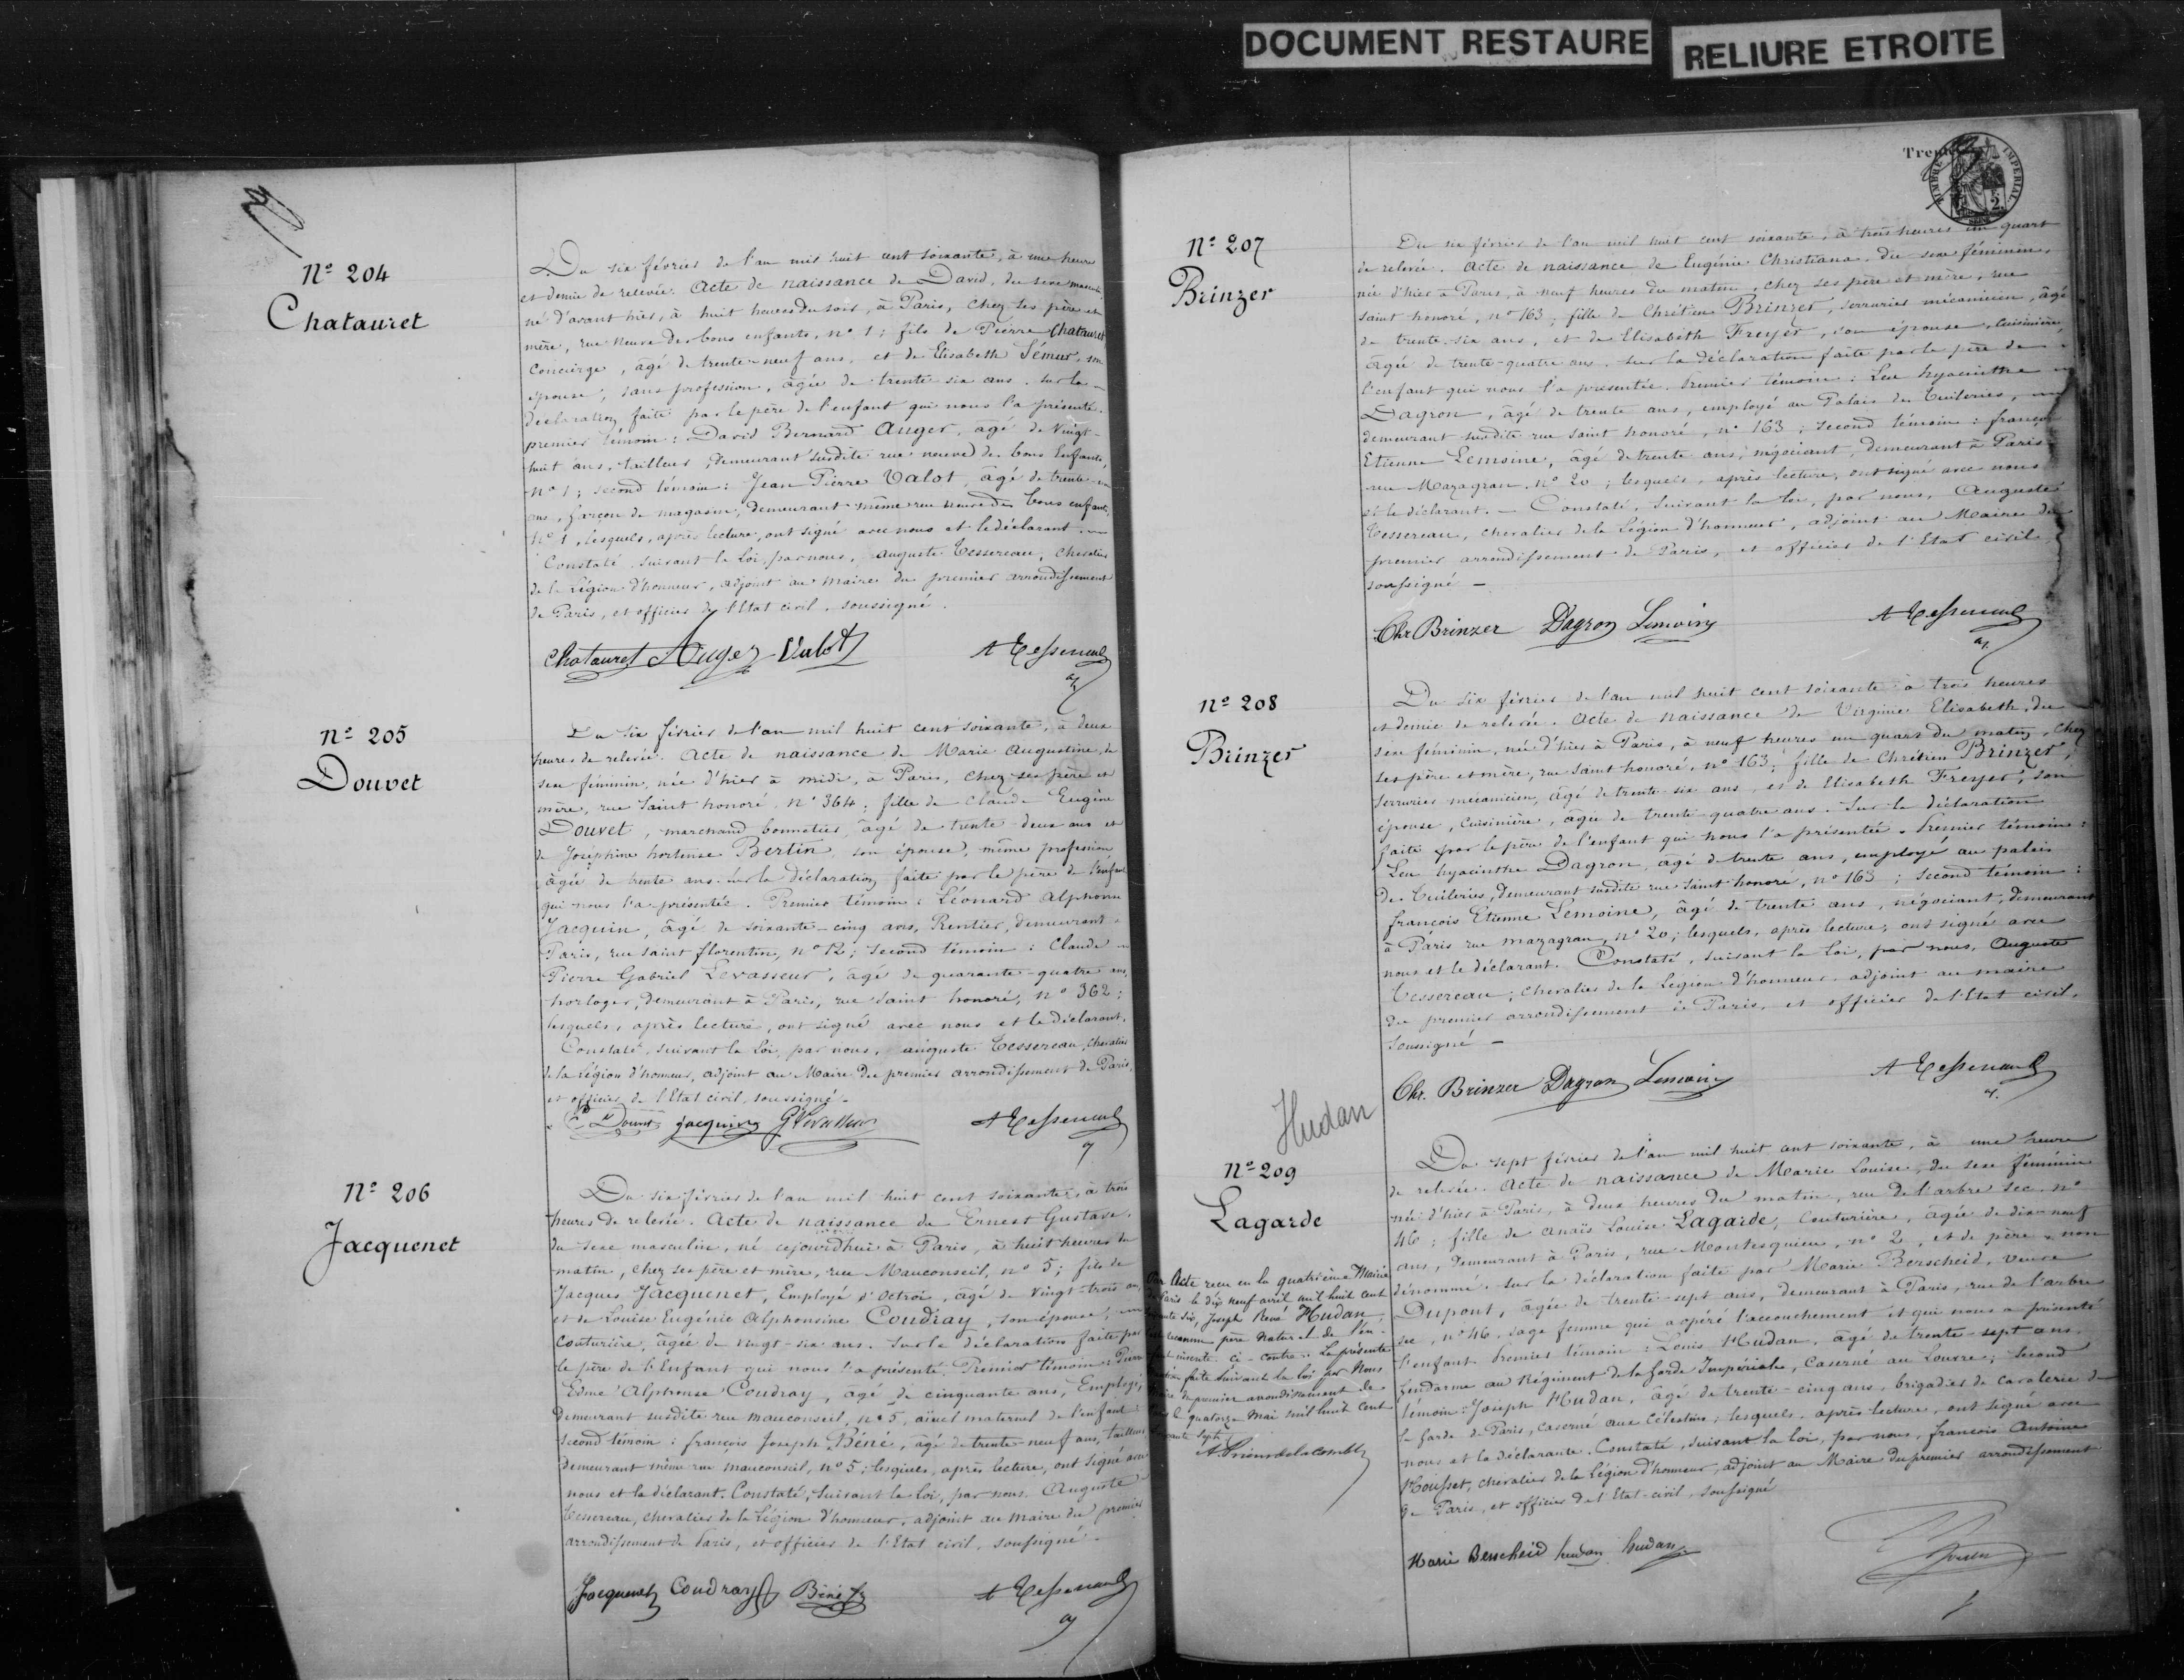 DOCUMENT RESTAURE
RELIURE ETROITE
Nº 204
Chatauret
Du six février de l'an mil huit cent soixante, à une heure
et demie de relevée. Acte de naissance de David, du sexe masculin,
né d'avant hier, à huit heures du soir, à Paris, chez ses père et
mère, rue Neuve des bons enfants, nº 1; fils de Pierre Chatauret
Concierge, âgé de trente-neuf ans, et de Elisabeth Sémur, son
épouse, sans profession, âgée de trente six ans. Sur la
déclaration faite par le père de l'enfant qui nous l'a présenté.
premier témoin: David Bernard Auger, âgé de Vingt-
huit ans, tailleur, demeurant susdite rue neuve des bons Enfants,
nº 1; second témoin: Jean Pierre Valot, âgé de trente-un
ans, garçon de magasin, demeurant même rue neuve des bons enfants,
nº 1, lesquels, après lecture, ont signé avec nous et le déclarant
Constaté, suivant la Loi, par nous, auguste Tessereau, chevalier
de la Légion d'honneur, adjoint au maire du premier arrondissement
de Paris, et officier de l'Etat civil, soussigné.
Chatauret Auger Valot A Tessereau
Nº 205
Douvet
Du six février de l'an mil huit cent soixante, à deux
heures de relevée. Acte de naissance de Marie Augustine, du
sexe féminin, née d'hier à midi, à Paris, chez ses père et
mère, rue Saint honoré, nº 364; fille de Claude Eugène
Douvet, marchand bonnetier, âgé de trente-deux ans et
de Joséphine hortense Bertin, son épouse, même profession
âgée de trente ans. Sur la déclaration faite par le père de l'enfant
qui nous l'a présentée. Premier témoin: Léonard Alphonse
Jacquin, âgé de soixante-cinq ans, Rentier, demeurant à
Paris, rue saint florentin, nº 12; second témoin: Claude
Pierre Gabriel Levasseur, âgé de quarante-quatre ans,
horloger, demeurant à Paris, rue Saint honoré, nº 362;
lesquels, après lecture, ont signé avec nous et le déclarant.
Constaté, suivant la Loi, par nous, auguste Tessereau, chevalier
de la Légion d'honneur, adjoint au Maire du premier arrondissement de Paris,
et officier de l'Etat civil, soussigné.
Douvet Jacquin G Levasseur A Tessereau
Nº 206
Jacquenet
Du six février de l'an mil huit cent soixante, à trois
heures de relevée. Acte de naissance de Ernest Gustave,
du sexe masculin, né cejourd'hui à Paris, à huit heures du
matin, chez ses père et mère, rue Mauconseil, nº 5; fils de
Jacques Jacquenet, Employé d'Octroi, âgé de vingt-trois ans,
et de Louise Eugénie Alphonsine Coudray, son épouse,
couturière, âgée de vingt-six ans. Sur la déclaration faite par
le père de l'Enfant qui nous l'a présenté. Premier témoin: Pierre
Edme Alphonse Coudray, âgé de cinquante ans, Employé,
demeurant susdite rue mauconseil, nº 5, aïeul maternel de l'enfant:
second témoin: françois Joseph Béné, âgé de trente-neuf ans, tailleur
demeurant même rue mauconseil, nº 5; lesquels, après lecture, ont signé avec
nous et le déclarant. Constaté, suivant la Loi, par nous. Auguste
Tessereau, chevalier de la Légion d'honneur, adjoint au maire du premier
arrondissement de Paris, et officier de l'Etat civil, soussigné.
Jacquenet Coudray Béné A Tessereau
TIMBRE IMPERIAL
Nº 207
Brinzer
Du six février de l'an mil huit cent soixante, à trois heures un quart
de relevée. Acte de naissance de Eugénie Christiana, du sexe féminin,
née d'hier à Paris, à neuf heures du matin, chez ses père et mère, rue
saint honoré, nº 163; fille de Chrétien Brinzer, serrurier mécanicien, âgé
de trente-six ans, et de Elisabeth Freyer, son épouse, cuisinière,
âgée de trente-quatre ans. Sur la déclaration faite par le père de
l'enfant qui nous l'a présentée. Premier témoin: Leu hyacinthe
Dagron, âgé de trente ans, employé au Palais des Tuileries,
demeurant susdite rue saint honoré, nº 163; second témoin: françois
Etienne Lemoine, âgé de trente ans, négociant, demeurant à Paris
rue Mazagran, nº 20; lesquels, après lecture, ont signé avec nous
et le déclarant. Constaté, suivant la Loi, par nous, Auguste
Tessereau, chevalier de la Légion d'honneur, adjoint au Maire du
premier arrondissement de Paris, et officier de l'Etat civil
soussigné
Chr Brinzer Dagron Lemoine A Tessereau
Nº 208
Brinzer
Du six février de l'an mil huit cent soixante à trois heures
et demie de relevée. Acte de naissance de Virginie Elisabeth, du
sexe féminin, née d'hier à Paris, à neuf heures un quart du matin, chez
ses père et mère, rue saint honoré, nº 163; fille de Chrétien Brinzer,
serrurier mécanicien, âgé de trente-six ans, et de Elisabeth Freyer, son
épouse, cuisinière, âgée de trente quatre ans. Sur la déclaration
faite par le père de l'enfant qui nous l'a présentée. Premier témoin:
Leu hyacinthe Dagron, âgé de trente ans, employé au palais
des Tuileries, demeurant susdite rue saint honoré, nº 163; second témoin:
françois Etienne Lemoine, âgé de trente ans, négociant, demeurant
à Paris rue mazagran, nº 20; lesquels, après lecture, ont signé avec
nous et le déclarant. Constaté, suivant la Loi, par nous, Auguste
Tessereau, chevalier de la Légion d'honneur, adjoint au maire
du premier arrondissement de Paris, et officier de l'Etat civil,
soussigné
Chr. Brinzer Dagron Lemoine A Tessereau
Hudan
Nº 209
Lagarde
Par Acte reçu en la quatrième Mairie
de Paris le dix neuf avril mil huit cent
soixante six, Joseph René Hudan
reconnu père Naturel de l'en-
fant inscrite ci-contre. La présente
faite suivant la loi par Nous
Maire du premier arrondissement de
Paris le quatorze Mai mil huit cent
soixante sept
Du sept février de l'an mil huit cent soixante, à une heure
de relevée. Acte de naissance de Marie Louise, du sexe féminin
née d'hier à Paris, à deux heures du matin, rue de l'arbre sec, nº
46; fille de Anaïs Louise Lagarde, couturière, âgée de dix-neuf
ans, demeurant à Paris, rue Montesquieu, nº 2, et de père non
dénommé. Sur la déclaration faite par Marie Berscheid, veuve
Dupont, âgée de trente-sept ans, demeurant à Paris, rue de l'arbre
sec, nº 46, sage femme qui a opéré l'accouchement et qui nous a présenté
l'enfant. Premier témoin: Louis Hudan, âgé de trente-sept ans,
gendarme au régiment de la garde Impériale, caserné au Louvre; second
témoin: Joseph Hudan, âgé de trente-cinq ans, brigadier de cavalerie de
la garde de Paris, caserné aux Célestins; lesquels, après lecture, ont signé avec
nous et la déclarante. Constaté, suivant la loi, par nous, françois Antoine
Housset, chevalier de la Légion d'honneur, adjoint au Maire du premier arrondissement
de Paris, et officier de l'Etat-civil, soussigné
Marie Berscheid hudan hudan